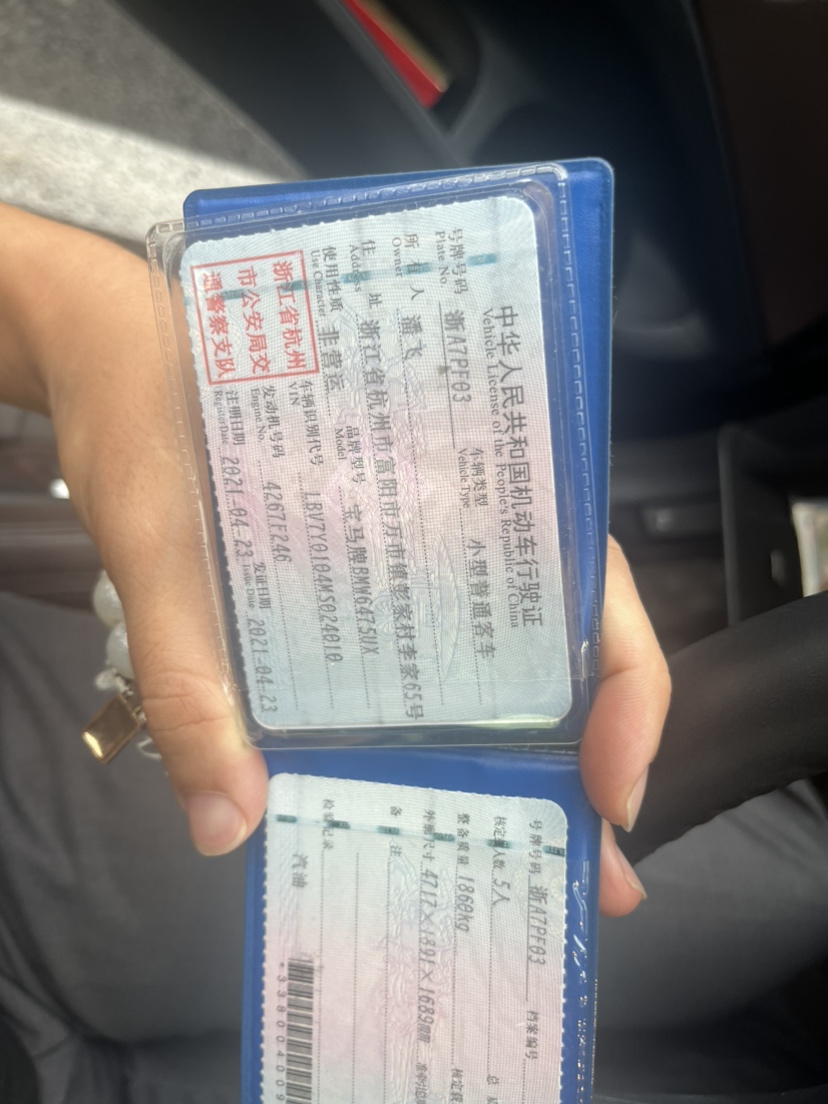 中华人民共和国机动车行驶证
Vehicle License of the People's Republic of China
号牌号码 浙A7PF03 车辆类型 小型普通客车
Plate No. Vehicle Type
所有人 潘飞
Owner
住址 浙江省杭州市富阳市万市镇彭家村李家65号
Address
使用性质 非营运 品牌型号 宝马牌BMW6475UX
Use Character Model
浙江省杭州
市公安局交
通警察支队
车辆识别代号 LBV7Y0104MS024010
VIN
发动机号码 4267F246
Engine No.
注册日期 2021-04-23 发证日期 2021-04-23
Register Date Issue Date
号牌号码 浙A7PF03 档案编号
核定载人数 5人 总
整备质量 1860kg 核定载
外廓尺寸 4717×1891×1689mm
备注
检验记录
汽油
*338004009